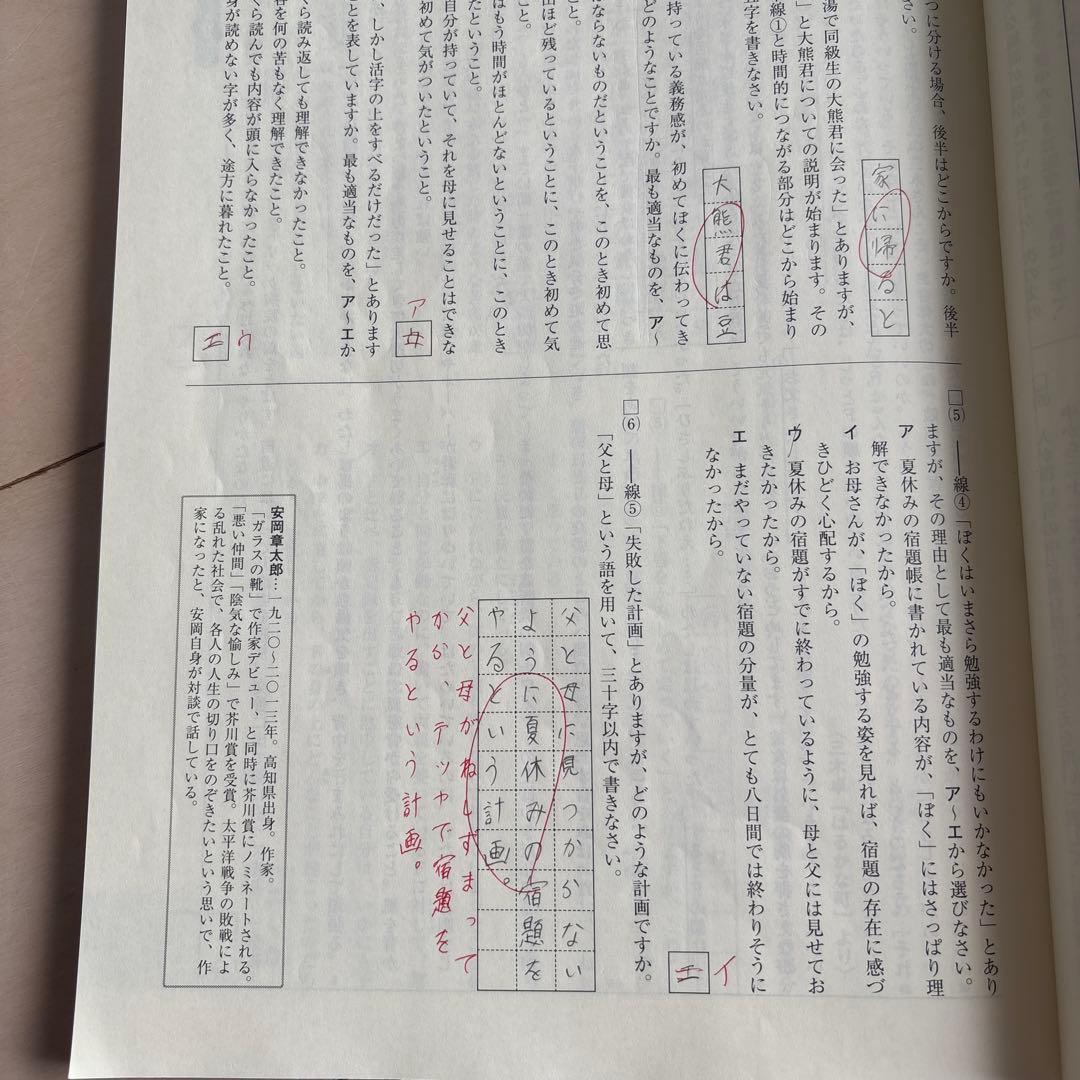 つに分ける場合、後半はどこからですか。後半
さい。
家に帰ると
湯で同級生の大熊君に会った」とありますが、
」と大熊君についての説明が始まります。その
線①と時間的につながる部分はどこから始まり
字を書きなさい。
大熊君は豆
持っている義務感が、初めてぼくに伝わってき
どのようなことですか。最も適当なものを、ア〜
ならないものだということを、このとき初めて思
こと。
ほど残っているということに、このとき初めて気
こと。
はもう時間がほとんどないということに、このとき
たということ。
自分が持っていて、それを母に見せることはできな
初めて気がついたということ。
ア
、しかし活字の上をすべるだけだった」とあります
ことを表していますか。最も適当なものを、ア〜エか
くら読み返しても理解できなかったこと。
を何の苦もなく理解できたこと。
くら読んでも内容が頭に入らなかったこと。
身が読めない字が多く、途方に暮れたこと。
エ
ウ
□(5) ――線④「ぼくはいまさら勉強するわけにもいかなかった」とあり
ますが、その理由として最も適当なものを、ア〜エから選びなさい。
ア 夏休みの宿題帳に書かれている内容が、「ぼく」にはさっぱり理
解できなかったから。
イ お母さんが、「ぼく」の勉強する姿を見れば、宿題の存在に感づ
きひどく心配するから。
ウ 夏休みの宿題がすでに終わっているように、母と父には見せてお
きたかったから。
エ まだやっていない宿題の分量が、とても八日間では終わりそうに
なかったから。
エ
イ
□(6) ――線⑤「失敗した計画」とありますが、どのような計画ですか。
「父と母」という語を用いて、三十字以内で書きなさい。
父と母に見つからない
ように夏休みの宿題を
やるという計画。
父と母がねしずまって
から、テツヤで宿題を
やるという計画。
安岡章太郎…一九二〇〜二〇一三年。高知県出身。作家。
「ガラスの靴」で作家デビュー、と同時に芥川賞にノミネートされる。
「悪い仲間」「陰気な愉しみ」で芥川賞を受賞。太平洋戦争の敗戦によ
る乱れた社会で、各人の人生の切り口をのぞきたいという思いで、作
家になったと、安岡自身が対談で話している。